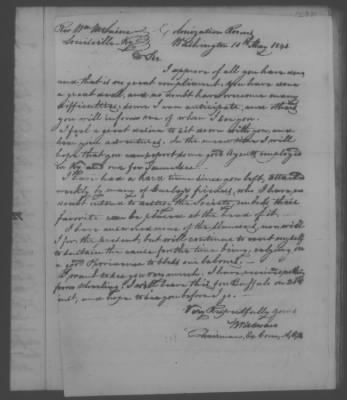 Rev. Wm McLain
Louisville Ky
Colonization Rooms
Washington 18th May 1841
D Sir
I approve of all you have done,
and that is no great compliment. You have done
a great deal, and no doubt have overcome many
difficulties, some I can anticipate, and others
you will inform me of when I see you.
I feel a great desire to sit down with you, and
hear your adventures. In the mean time I will
hope that you can report some good Agents employed
in Ky and one for Tennessee.
I have had a hard time since you left, attacked
weekly by many of friends, who I have no
doubt intend to the Society, unless their
favorite can be placed at the head of it.
I have answered none of them, nor will
I for the present, but will continue to exert myself
to sustain the cause for the time being, relying on
a good Providence to bless our labors.
I want to see you very much. I have
from I will leave this for Buffalo on
inst, and hope to see you before I go.
Very Respectfully yours
Wilkeson
Chairman, Ex Com, A, C, S